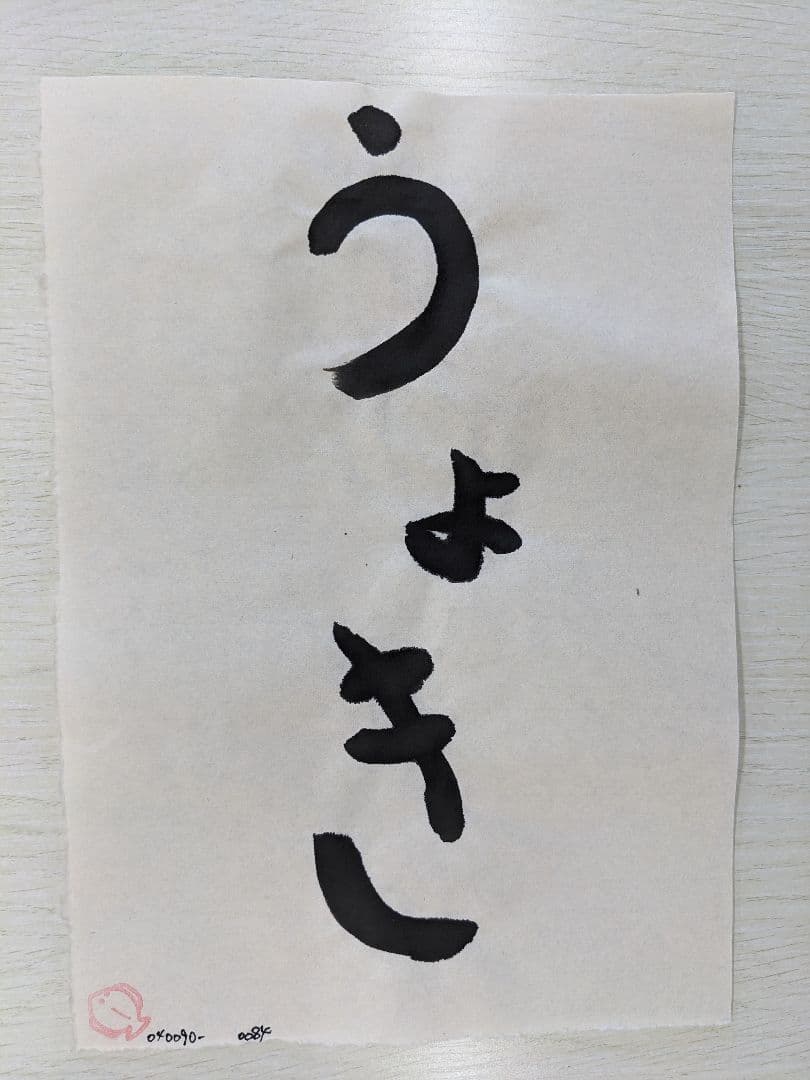 うょき
040090- 0084